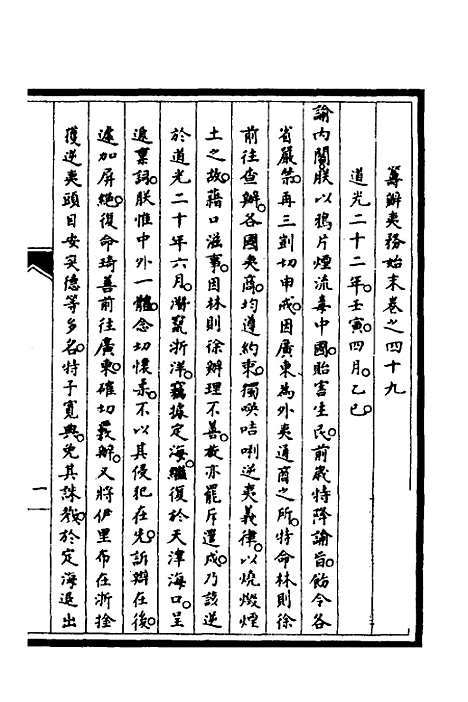 籌辦夷務始末卷之四十九
道光二十二年。壬寅。四月。乙巳。
諭內閣朕以鴉片煙流毒中國。貽害生民。前歲特降諭旨。飭令各
省嚴禁。再三剴切申戒。因廣東為外夷通商之所。特命林則徐
前往查辦。各國夷商。均遵約束。獨㖟咭唎逆夷義律。以燒燬煙
土之故。藉口滋事。因林則徐辦理不善。故亦罷斥遣戍。乃該逆
於道光二十年六月。潛竄浙洋。竊據定海。繼復於天津海口。呈
遞稟詞。朕惟中外一體。念切懷柔。不以其侵犯在先。訴辯在後。
遽加屏絕。復命琦善前往廣東。確切覈辦。又將伊里布在浙拴
獲逆夷頭目安突德等多名。特予寬典。免其誅戮。於定海退出
一